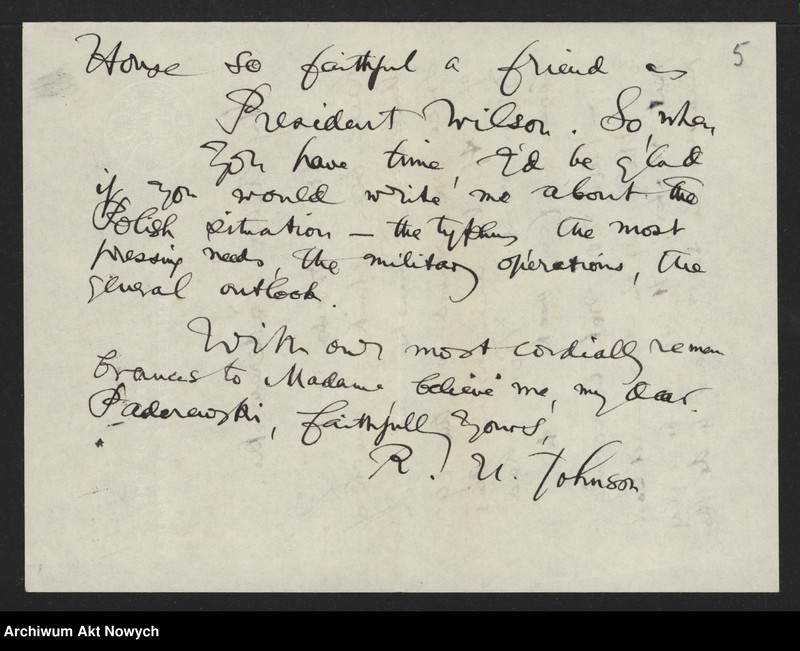 5
House so faithful a friend as
President Wilson. So, when
you have time, I'd be glad
if you would write me about the
Polish situation — the typhus, the most
pressing needs, the military operations, the
general outlook.
With our most cordially remem
brances to Madame, believe me, my dear
Paderewski, faithfully yours,
R. U. Johnson
Archiwum Akt Nowych